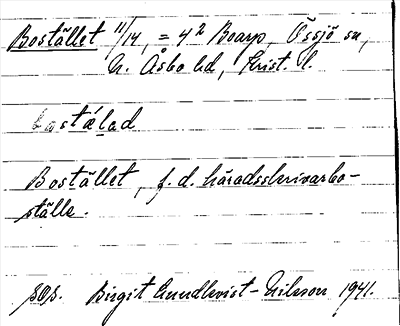 Bostället 11/14, = 4² Boarp, Össjö sn,
N. Åsbo hd, Krist. l.
bostälad
Bostället, f. d. häradsskrivarbo-
ställe.
Birgit Lundkvist-Nilsson 1941.